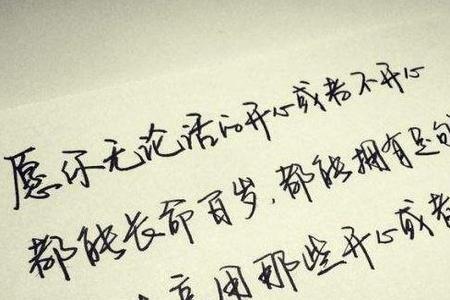 愿你无论活的开心或者不开心
都能长命百岁,都能拥有足
用那些开心或者